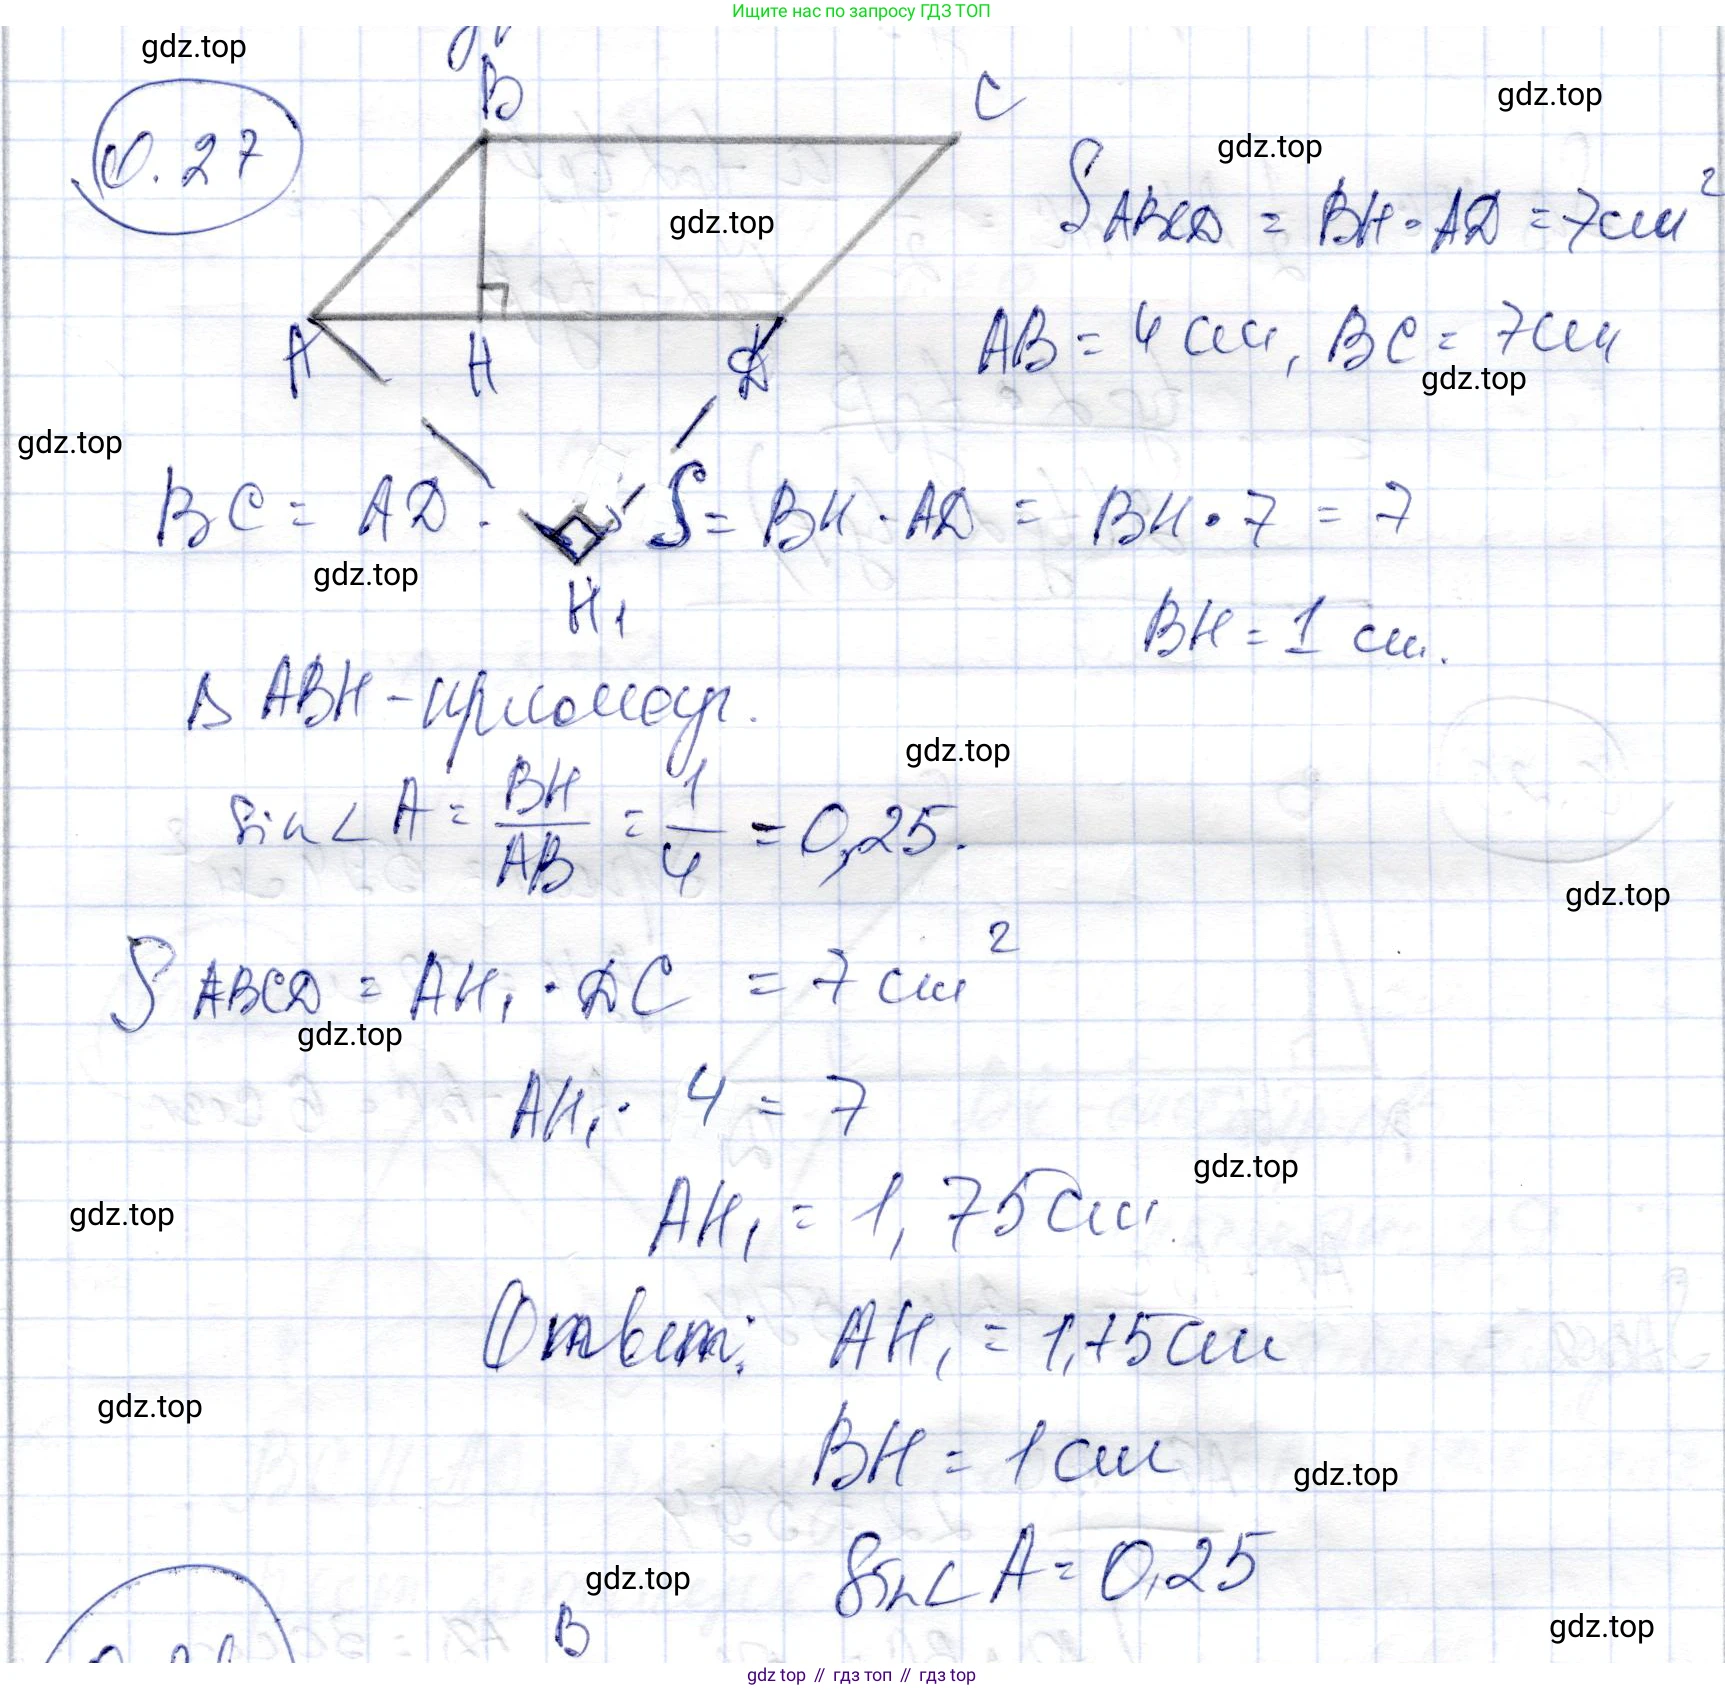 Ищите нас по запросу ГДЗ ТОП
gdz.top
gdz.top
0.27
B
C
gdz.top
S ABCD = BH · AD = 7см²
gdz.top
A
H
D
AB = 4 см, BC = 7см
gdz.top
gdz.top
BC = AD.
S = BH · AD = BH · 7 = 7
gdz.top
H₁
BH = 1 см.
Δ ABH - прямоуг.
gdz.top
sin∠A = BH/AB = 1/4 = 0,25.
gdz.top
S ABCD = AH₁ · DC = 7 см²
gdz.top
AH₁ · 4 = 7
gdz.top
gdz.top
AH₁ = 1,75см
Ответ: AH₁ = 1,75см
gdz.top
BH = 1 см
gdz.top
sin∠A = 0,25
gdz.top
B
gdz.top
gdz top // гдз топ // гдз top